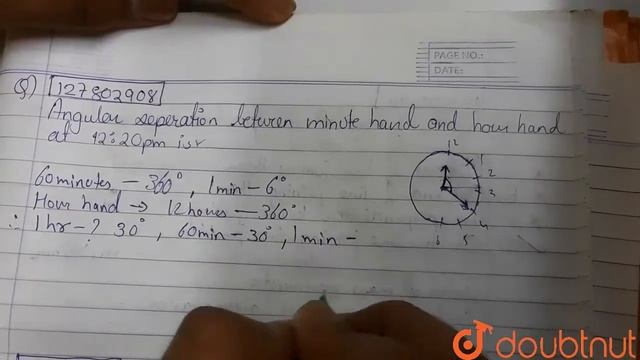 PAGE NO.:
DATE:
Q) 127802908
Angular seperation between minute hand and hour hand
at 12:20pm is:
60 minutes - 360°, 1 min - 6°
Hour hand → 12 hours - 360°
∴ 1 hr - ? 30°, 60 min - 30°, 1 min -
12
1
2
3
4
5
6
doubtnut